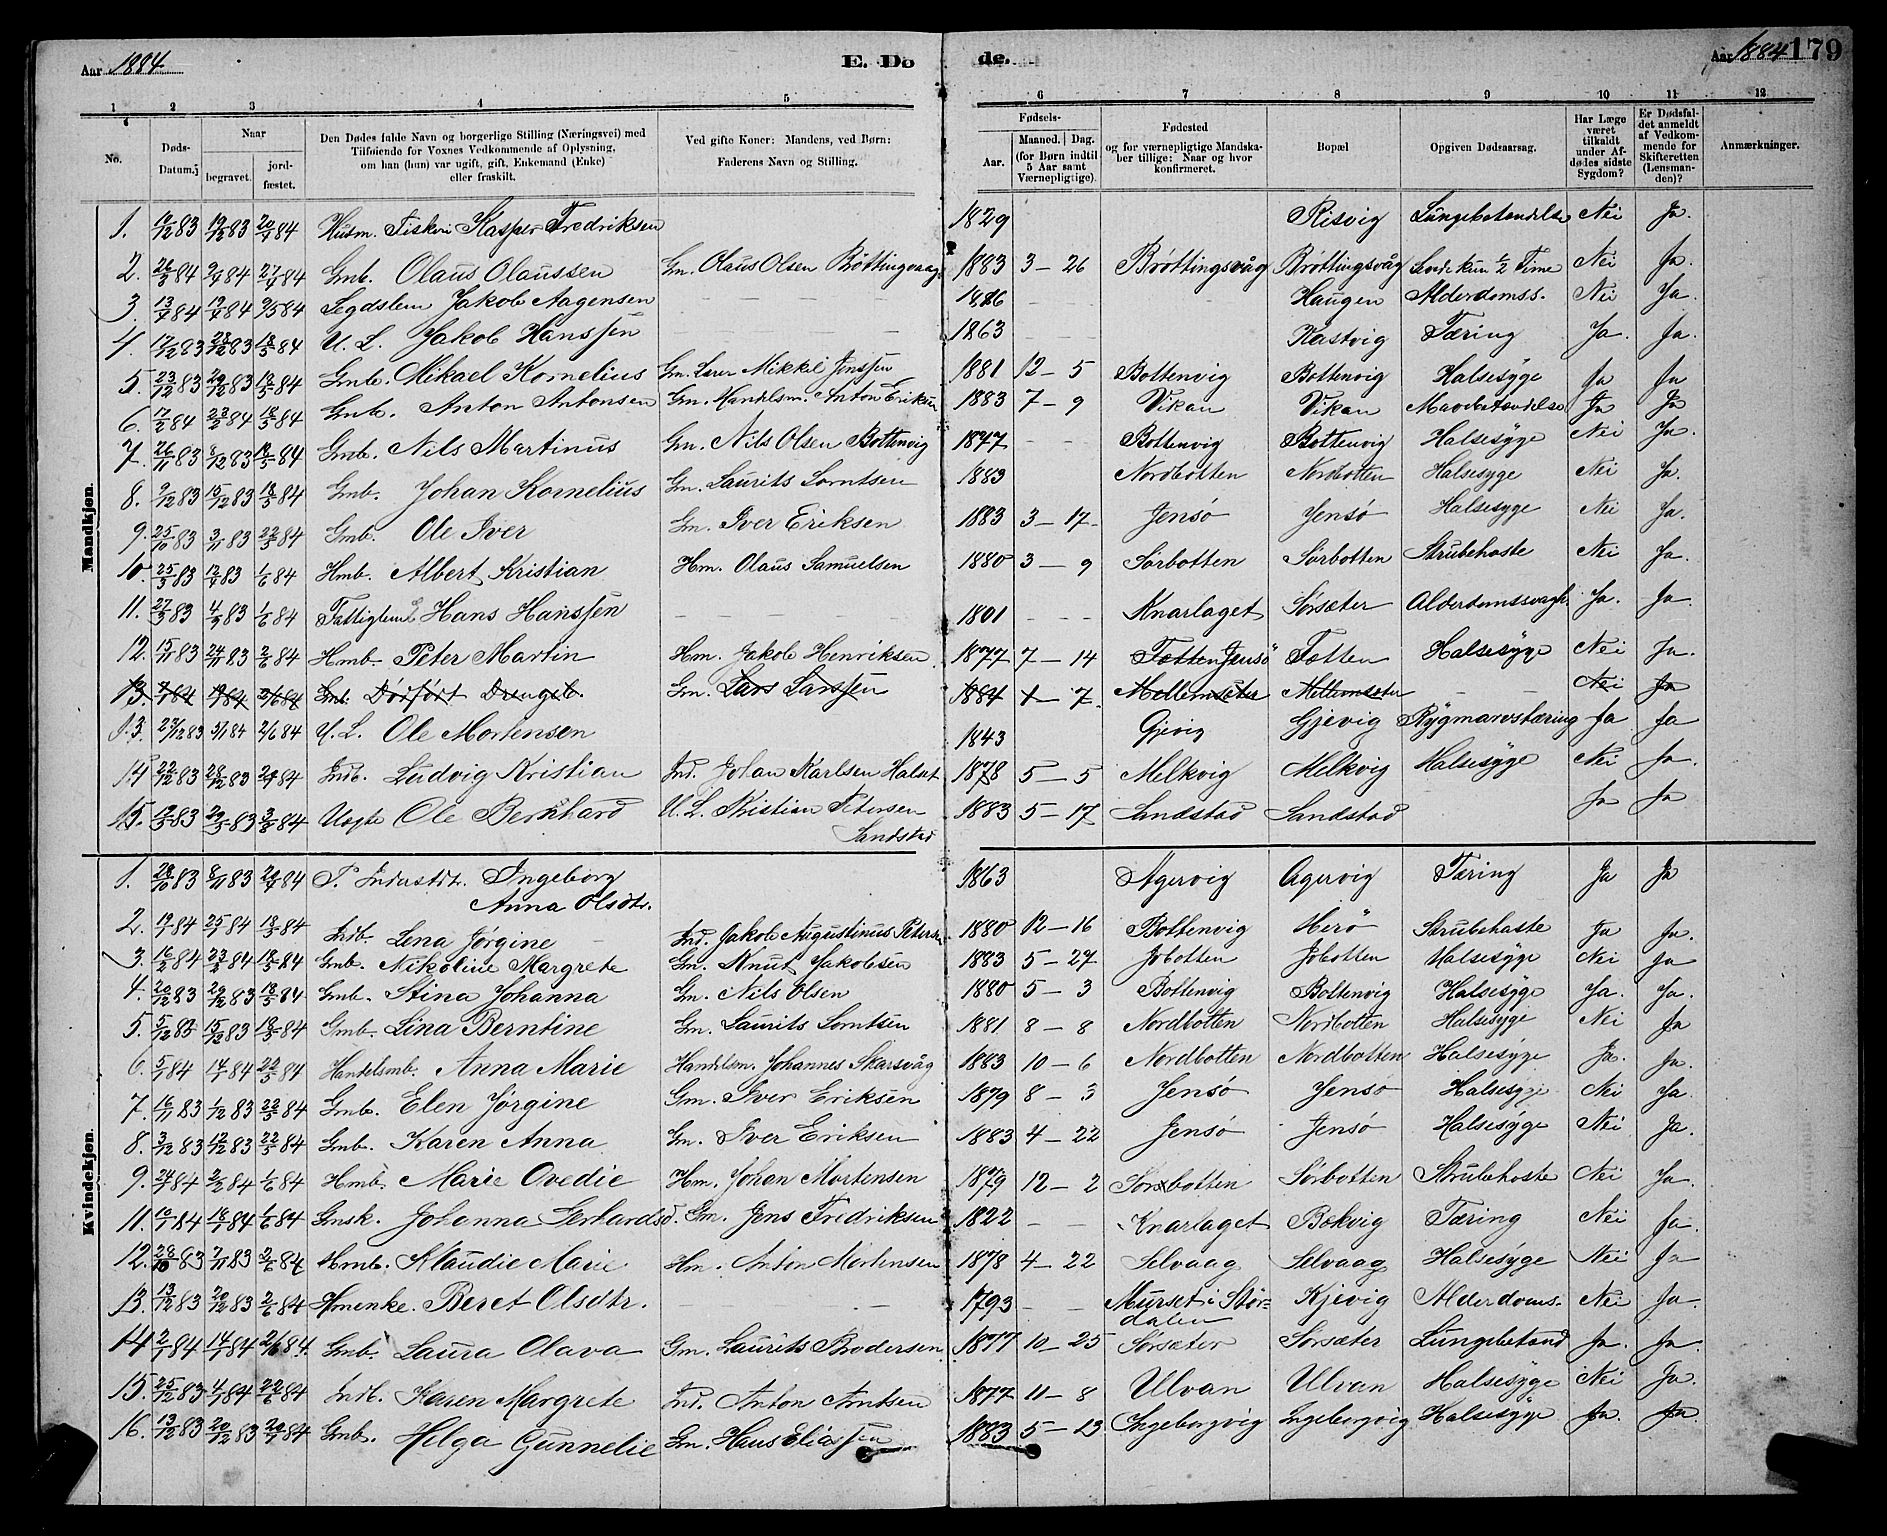 Aar 1884. E. Dø de. Aar 1884 179
1 2 3 4 5 6 7 8 9 10 11 12
No. Døds-Datum. Naar begravet. jordfæstet. Den Dødes fulde Navn og borgerlige Stilling (Næringsvei) med Tilføiende for Voxnes Vedkommende af Oplysning, om han (hun) var ugift, gift, Enkemand (Enke) eller fraskilt. Ved gifte Koner: Mandens, ved Børn: Faderens Navn og Stilling. Fødsels- Aar. Maaned. Dag. (for Børn indtil 5 Aar samt Værnepligtige). Fødested og for værnepligtige Mandskaber tillige: Naar og hvor konfirmeret. Bopæl Opgiven Dødsaarsag. Har Læge været tilkaldt under Afdødes sidste Sygdom? Er Dødsfaldet anmeldt af Vedkommende for Skifteretten (Lensmanden)? Anmærkninger.
Mandkjøn.
1. 83 83 84 Husm. Fisker Kasper Fredriksen 1829 Risvig Lungebetændelse Nei Ja.
2. 26/3 84 84 27/4 84 Gmb. Olaus Olaussen Gm. Olaus Olsen Brøttingvaag 1883 3 – 26 Brøttingsvåg Brøttingsvåg Levde kun 1/2 Time Nei Ja.
3. 13/4 84 19/4 84 9/5 84 Legdslem Jakob Aagensen – – – Haugen Alderdomss. Nei Ja.
4. 17/12 83 28/12 83 18/5 84 U. L. Jakob Hanssen – – – 1863 Kastvig Tæring Ja. Ja.
5. 23/12 83 29/12 83 18/5 84 Gmb. Mikael Kornelius Gm. Mikkel Jenssen 1881 12 – 5 Bottenvig Bottenvig Halsesyge Ja Ja
6. 17/2 84 22/2 84 18/5 84 Gmb. Anton Antonsen Gm. Handelsm. Anton Eriksen 1883 7 – 9 Vikan Vikan Mavebetændelse Ja Ja
7. 26/11 83 8/12 83 18/5 84 Gmb. Nils Martinus Gm. Nils Olsen Bottenvig – – Bottenvig Bottenvig Halsesyge Nei Ja.
8. 9/12 83 15/12 83 18/5 84 Gmb. Johan Kornelius Gm. Laurits Lorntsen 1883 Nordbotten Nordbotten Halsesyge Nei Ja.
9. 25/10 83 3/11 83 22/5 84 Gmb. Ole Iver Gm. Iver Eriksen 1883 3 – 17 Jensø Jensø Halsesyge Nei Ja.
10. 25/3 83 83 1/6 84 Hmb. Albert Kristian Hm. Olaus Samuelsen 1880 3 – 9 Sørbotten Sørbotten Strubehoste Nei Ja.
11. 83 83 1/6 84 Fattiglem Hans Hanssen – – 1801 – – – Knarlaget Sørsæter Alderdomssvagh. Ja. Ja.
12. 15/11 83 24/11 83 2/6 84 Hmb. Peter Martin Hm. Jakob Henriksen 1877 7 – 14 Tætten Jensö Tætten Halsesyge Nei Ja.
13. 84 84 2/6 84 Gmb. Dødfødt Drengeb. Gm. Lars Larssen 1884 1 – 7. Mellemsæter Mellemsæter – – Nei Ja
13. 23/12 83 5/1 84 2/6 84 U. L. Ole Mortensen 1843 Gjevig Gjevig Rygmarvstæring Ja Ja
14 22/12 83 28/12 83 84 Indb. Ludvig Kristian Ind. Johan Karlsen Halset 1878 5 – 5 Melkvig Melkvig Halsesyge Nei Ja.
15. 83 83 84 Uægte Ole Bernhard U. L. Kristian Petersen Sandstad 1883 5 – 17 Sandstad Sandstad Ja Ja
Kvindekjøn.
1. 28/10 83 8/11 83 20/4 84 P. Inderstdt. Ingeborg Anna Olsdtr. 1863 Agervig Agervig Tæring Ja Ja
2. 84 84 18/5 84 Indb. Lena Jørgine Ind. Jakob Augustinus Petersen 1880 12 – 16 Bottenvig Herö Strubehoste Ja Ja.
3. 16/2 84 23/2 84 18/5 84 Gmb. Nikoline Margrete Gm. Knut Jakobsen 1883 5 – 27 Jøbotten Jøbotten Halsesyge Nei Ja
4. 20/12 83 29/12 83 18/5 84 Gmb. Stina Johanna Gm. Nils Olsen 1880 5 – 3 Bottenvig Bottenvig Halsesyge Ja. Ja.
5. 5/12 83 15/12 83 18/5 84 Gmb. Lina Berntine Gm. Laurits Lorntsen 1881 8 – 8 Nordbotten Nordbotten Halsesyge Nei Ja
6. 5/1 84 84 22/5 84 Handelsmb. Anna Marie Handelsm. Johannes Skarsvåg 1883 10 – 6 Nordbotten Nordbotten Halsesyge Ja. Ja.
7. 16/11 83 1/12 83 22/5 84 Gmb. Elen Jørgine Gm. Iver Eriksen 1879 8 – 3 Jensø Jensø Halsesyge Nei Ja
8. 3/12 83 12/12 83 22/5 84 Gmb. Karen Anna Gm. Iver Eriksen 1883 4 – 22 Jensø Jensø Halsesyge Nei Ja.
9. 84 2/2 84 1/6 84 Hmb. Marie Ovedie Hm. Johan Mortensen 1879 12 – 2 Sørbotten Sørbotten Strubehoste Nei Ja.
11. 84 84 1/6 84 Gmsk. Johanna Gerhardsd. Gm. Jens Fredriksen 1822 – – Knarlaget Bekvig Tæring Nei Ja.
12. 28/10 83 7/11 83 2/6 84 Hmb. Klaudie Marie Hm. Anton Mortensen 1878 4 – 22 Selvaag Selvaag Halsesyge Nei Ja
13. 13/12 83 20/12 83 2/6 84 Hmenke. Beret Olsdtr. – – – 1793 – – Murset i Størdalen Kjevig Alderdoms. Nei Ja.
14 2/1 84 14/1 84 2/6 84. Gmb. Laura Olava Gm. Laurits Brodersen 1877 10 – 25 Sørsæter Sørsæter Lungebetænd Ja. Ja.
15. 25/12 83 4/1 84 22/6 84 Indb. Karen Margrete Ind. Anton Arntsen 1877 11 – 8 Ulvan Ulvan Halsesyge Nei Ja.
16. 13/12 83 20/12 83 20/7 84 Gmb. Helga Gunnelie Gm. Hans Eliassen 1883 5 – 13 Ingeborgvig Ingeborgvig Halsesyge Ja. Ja.